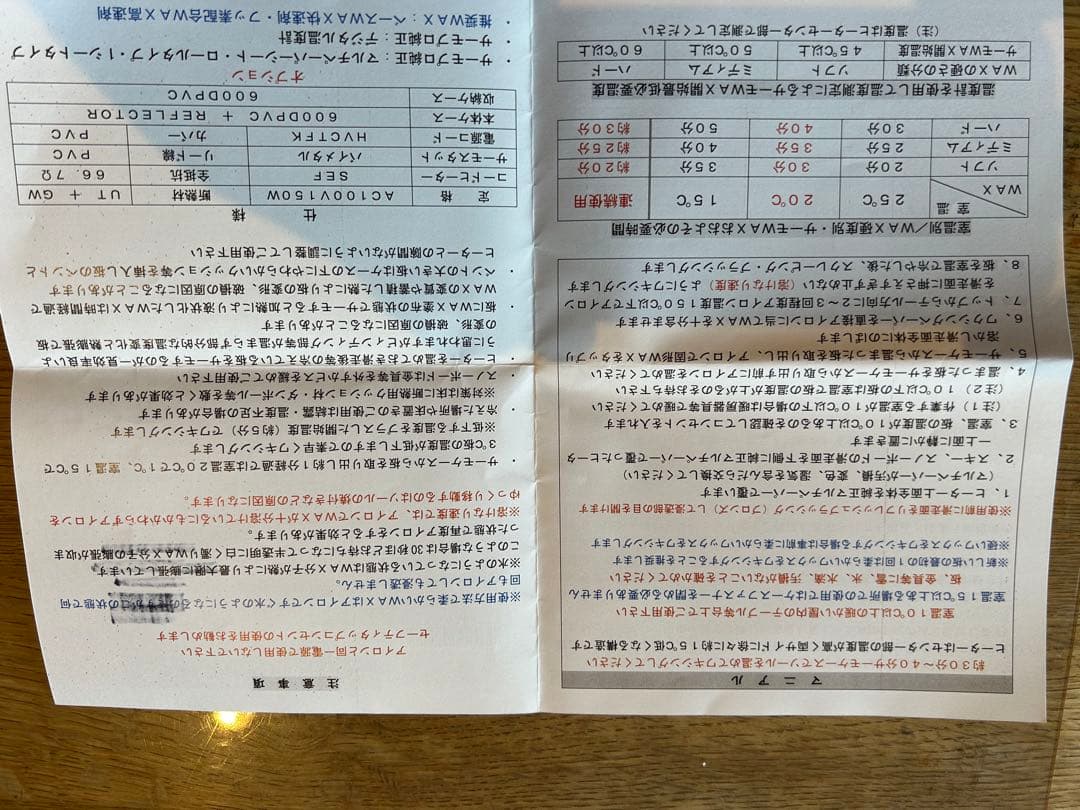 マニュアル
約30分～40分サーモケースでソールを温めてワキシングしてください
ヒーターはセンター部の温度が高く両サイドに徐々に約15℃低くなる構造です
室温10℃以上の暖かい屋内のテーブル等台上でご使用下さい
室温15℃以上ある場所での使用ではケースファスナーを閉める必要ありません
板、金具等に雪、氷、水滴、汚損がないことを確めてください
※新しい板の最初の1回は柔らかいワックスをワキシングすることを推奨します
※硬いワックスをワキシングする場合は事前に柔らかいワックスをワキシングします
※使用前に滑走面をリフレッシュブラッシング（ブロンズ）して浸透部の目を開けます
1、ヒーター上面全体を純正マルチペーパーで覆います
（マルチペーパーが汚損、変色、湿気を含んだら交換してください）
2、スキー、スノーボードの滑走面を下側に純正マルチペーパーで覆ったヒーター上面に静かに置きます
3、室温、板の温度が10℃以上あるのを確認してコンセントを入れます
（注1）作業する室温が10℃以下の場合は暖房器具等で暖めてください
（注2）10℃以下の板は室温で板の温度が上がるのをお待ち下さい
4、温まった板をサーモケースから取り出す前にアイロンを温めてください
5、サーモケースから温まった板を取り出し、アイロンで固形WAXをタップリ
溶かし滑走面全体にのばします
6、ワクシングペーパーを直接アイロンに当てWAXを十分含ませます
7、トップからテール方向に2～3回程アイロン温度150℃以下でアイロン
を滑走面に押えすぎず止めない（溶けなり速度）ようにワキシングします
8、板を室温で冷やした後、スクレーピング・ブラッシングします
室温別／WAX硬度別・サーモWAXおおよその必要時間
WAX 室温 25℃ 20℃ 15℃ 連続使用
ソフト 20分 30分 35分 約20分
ミディアム 25分 35分 40分 約25分
ハード 30分 40分 50分 約30分
温度計を使用して温度測定によるサーモWAX開始最低必要温度
WAXの硬さの分類 ソフト ミディアム ハード
サーモWAX開始温度 45℃以上 50℃以上 60℃以上
（注）温度はヒーターセンター部で測定してください
注意事項
アイロンと同一電源で使用しないで下さい
セーフティタップコンセントの使用をお勧めします
※使用方法で柔らかいWAXはアイロンですぐ水のようになるのですがこの状態で何
回もアイロンしても浸透しません。
※水のようになっている状態はWAX分子が熱により最大限に膨張しています
このような場合は30秒ほどお待ちになって半透明に白く濁りWAX分子の膨張が収ま
った状態で再度アイロンをすると効果があります。
※溶けなり速度では、アイロンでWAXが十分溶けているにもかかわらずアイロンを
ゆっくり移動するのはソールの焼け付きなどの原因になります。
・サーモケースから板を取り出し約1分経過では室温20℃で1℃、室温15℃で
3℃板の温度が低下しますので素早くワキシングします
※低下する温度をプラスした開始温度（約5分）でワキシングします
・冷えた場所や床置きのご使用は結露・温度不足の場合があります
※対策は床に断熱用クッション材・ダンボール等を敷くと効果があります
・スノーボードは金具等を外すかビスを緩めてご使用下さい
・ヒーターを温めておき滑走後等の冷えている板をサーモするのが一見効率良いよ
うに思われますがビンディング部等が温まらず部分的な温度変化と熱膨張で板
の変形、破損の原因になることがあります
・板にWAX塗布の状態でサーモすると加熱により液状化したWAXは時間経過で
WAXの変質や蓄積した熱により板の変形、破損の原因になることがあります
・ベントの大きい板はケースの下にやわらかいクッション等を挿入し板のベントと
ヒーターとの隙間がないように調整してご使用下さい
仕様
定格 AC100V150W 断熱材 UT ＋ GW
コードヒーター SEF 全抵抗 66.7Ω
サーモスタット バイメタル リード線 PVC
電源コード HVCTFK カバー PVC
本体ケース 600DPVC ＋ REFLECTOR
収納ケース 600DPVC
オプション
・サーモプロ純正：マルチペーパーシート・ロールタイプ・1シートタイプ
・サーモプロ純正：デジタル温度計
・推奨WAX：ベースWAX快速剤・フッ素配合WAX高速剤